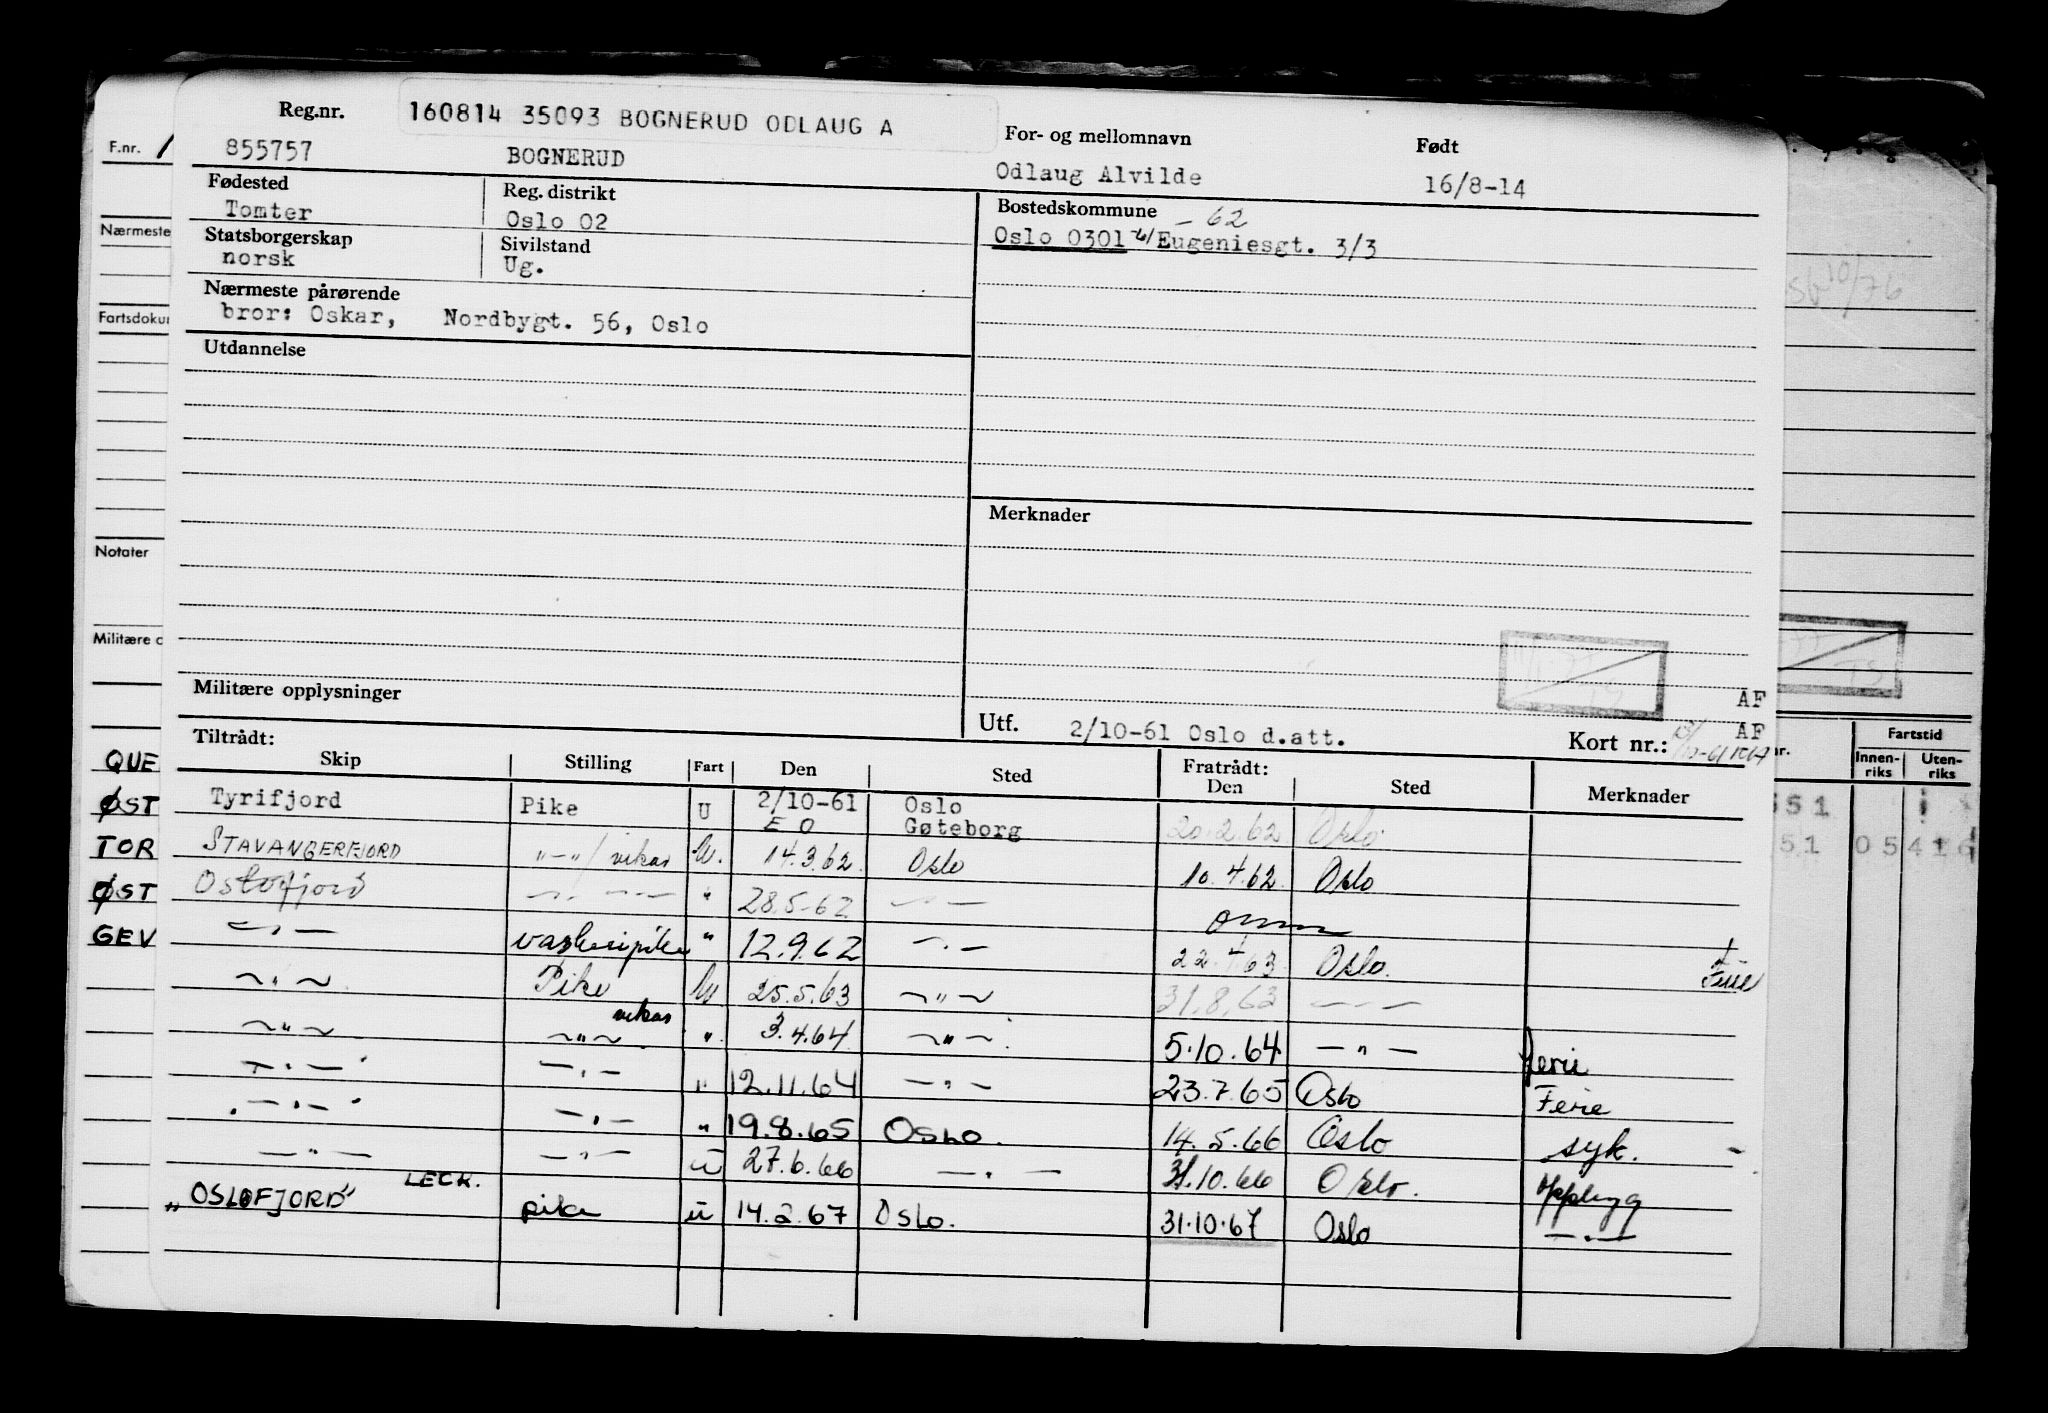 Reg.nr. 160814 35093 BOGNERUD ODLAUG A
For- og mellomnavn Født
855757 BOGNERUD Odlaug Alvilde 16/8-14
Fødested Reg. distrikt Bostedskommune
Tomter Oslo 02 - 62
Statsborgerskap Sivilstand Oslo 0301 Eugeniesgt. 3/3
norsk Ug.
Nærmeste pårørende
bror: Oskar, Nordbygt. 56, Oslo
Utdannelse
Merknader
Militære opplysninger
AF
Utf. 2/10-61 Oslo d.att. AF
Kort nr.:
Tiltrådt: Fratrådt:
Skip Stilling Fart Den Sted Den Sted Merknader
Tyrifjord Pike U 2/10-61 Oslo
E O Gøteborg 20.2.62 Oslo
STAVANGERFJORD "-" / vikar U. 14.3.62 Oslo 10.4.62 Oslo
Oslofjord -"- -"- " 28.5.62 -"- omm
-"- vaskeripike " 12.9.62 -"- 22.4.63 Oslo. Ferie
-"- Pike U 25.5.63 -"- 31.8.63 -"-
-"- -"- vikar " 3.4.64 -"- 5.10.64 -"- ferie
-"- -"- " 12.11.64 -"- 23.7.65 Oslo Ferie
-"- -"- " 19.8.65 OSLO. 14.5.66 Oslo syk.
-"- -"- u 27.6.66 -"- 31.10.66 Oslo. Opplag
LECK.
"OSLOFJORD" pike u 14.2.67 OSLO. 31.10.67 Oslo -"-
F.nr.
Nærmeste
Fartsdoku
Notater
Militære o
QUE
ØST
TOR
ØST
GEV
10/76
TS
nr. Fartstid
Innen-
riks
Uten-
riks
551
51 05416